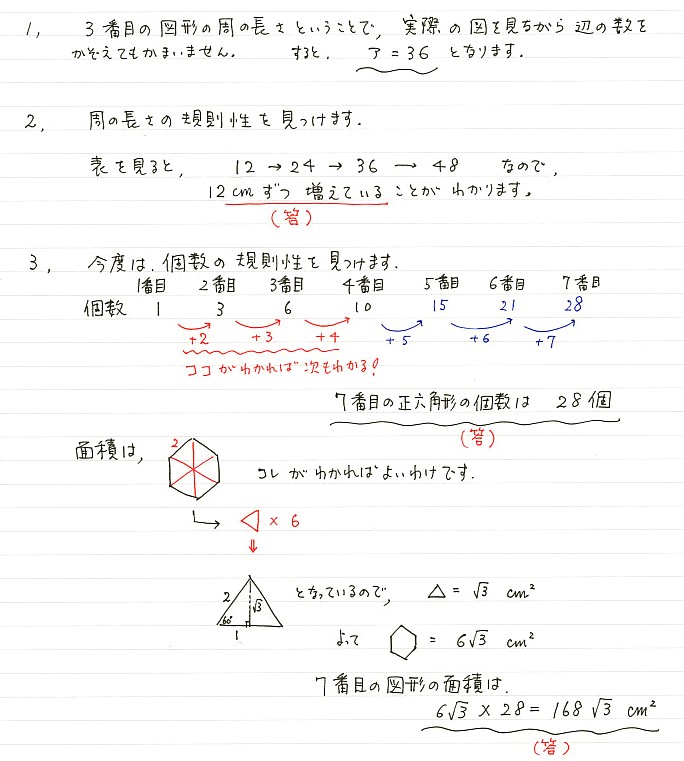 1, 3番目の図形の周の長さということで, 実際の図を見ながら辺の数を
かぞえてもかまいません. すると, ア = 36 となります.
2, 周の長さの規則性を見つけます.
表を見ると, 12 → 24 → 36 → 48 なので,
12 cm ずつ 増えている ことが わかります.
(答)
3, 今度は, 個数の規則性を見つけます.
1番目 2番目 3番目 4番目 5番目 6番目 7番目
個数 1 3 6 10 15 21 28
+2 +3 +4 +5 +6 +7
ココがわかれば次もわかる!
7番目の正六角形の個数は 28個
(答)
面積は, 2 コレがわかればよいわけです.
× 6
2 √3 60° 1 となっているので, △ = √3 cm²
よって ⬡ = 6√3 cm²
7番目の図形の面積は.
6√3 × 28 = 168√3 cm²
(答)